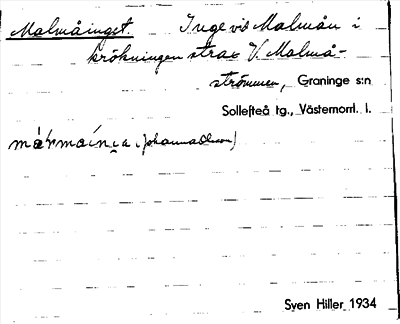 Malmåinget. Inge vid Malmån i
krökningen strax V. Malmå-
strömmen, Graninge s:n
Sollefteå tg., Västernorrl. l.
(Johannaolsson)
Sven Hiller 1934